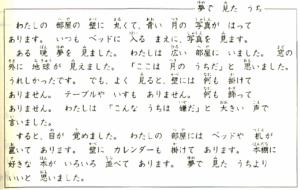 夢で 見た うち
わたしの 部屋の 壁に 丸くて、青い 月の 写真が はって
あります。いつも ベッドに 入る まえに、写真を 見ます。
ある 晩 夢を 見ました。わたしは 広い 部屋に いました。窓の
外に 地球が 見えました。「ここは 月の うちだ」と 思いました。
うれしかったです。でも、よく 見ると、壁には 何も 掛けて
ありません。テーブルや いすも ありません。何も 飾って
ありません。わたしは「こんな うちは 嫌だ」と 大きい 声で
言いました。
すると、目が 覚めました。わたしの 部屋には ベッドや 机が
置いて あります。壁に カレンダーも 掛けて あります。本棚に
好きな 本が いろいろ 並べて あります。夢で 見た うちより
いいと 思いました。